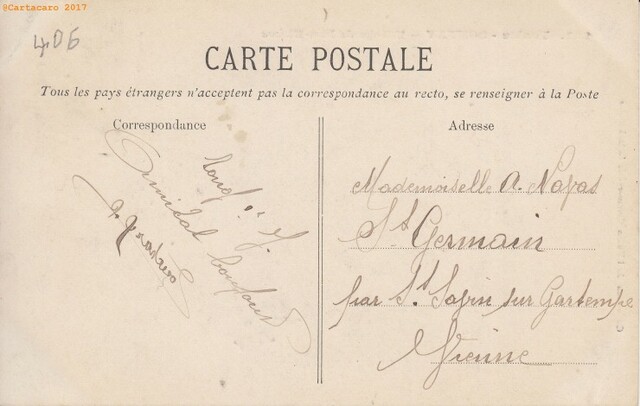 ©Cartacaro 2017
406
CARTE POSTALE
Tous les pays étrangers n'acceptent pas la correspondance au recto, se renseigner à la Poste
Correspondance
Amical
Adresse
Mademoiselle A. Nayas
St Germain
par St Savin sur Gartempe
Vienne